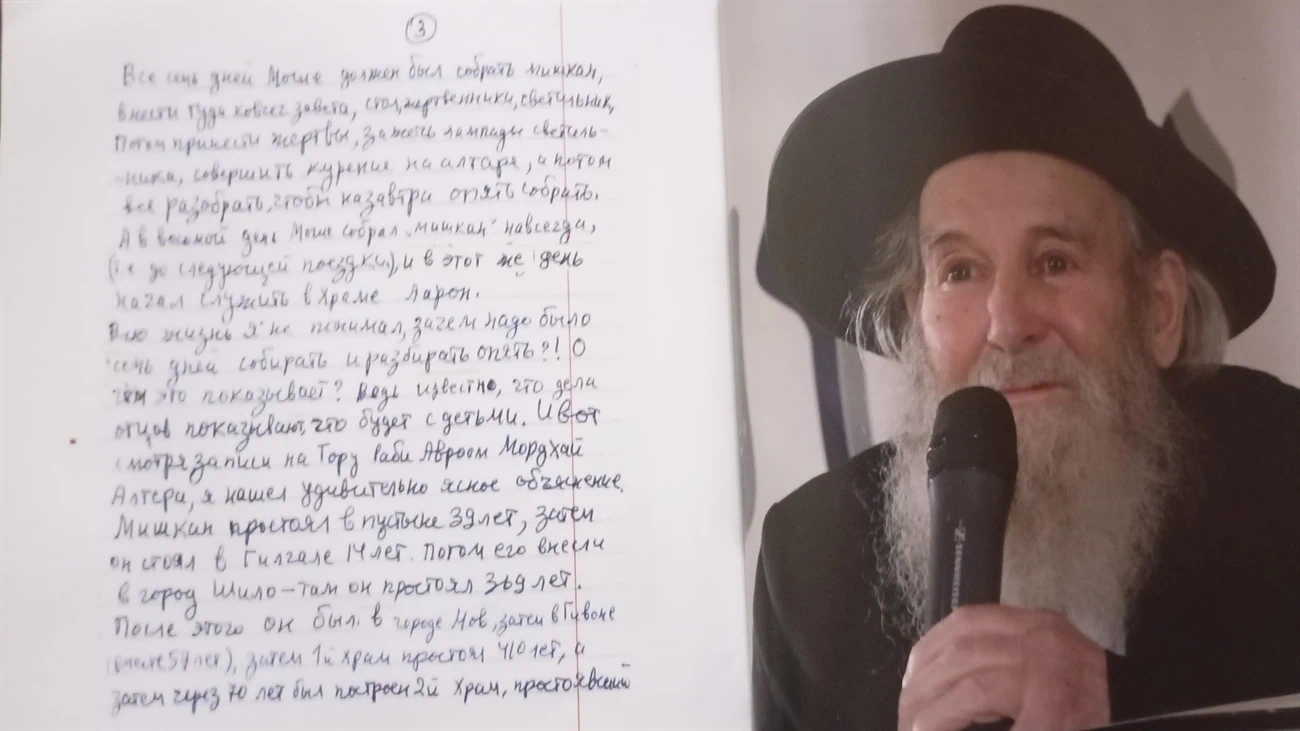 3
Все семь дней Моше должен был собрать мишкан,
внести туда ковчег завета, стол, жертвенники, светильник,
Потом принести жертвы, зажечь лампады светиль-
ника, совершить курение на алтаре, а потом
все разобрать, чтобы назавтра опять собрать.
А в восьмой день Моше собрал „мишкан" навсегда,
(т.е. до следующей поездки), и в этот же день
начал служить в Храме Аарон.
Всю жизнь я не понимал, зачем надо было
семь дней собирать и разбирать опять?! О
чем это показывает? Ведь известно, что дела
отцов показывают, что будет с детьми. И вот
смотря записи на Тору Раби Авроом Мордхай
Алтера, я нашел удивительно ясное объяснение.
Мишкан простоял в пустыне 39 лет, затем
он стоял в Гилгале 14 лет. Потом его внесли
в город Шило – там он простоял 369 лет.
После этого он был в городе Нов, затем в Гивоне
(вместе 57 лет), затем 1й храм простоял 410 лет, а
затем через 70 лет был построен 2й Храм, простоявший